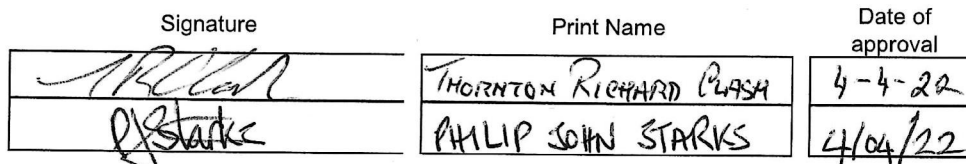 Signature Print Name Date of
approval
TRClash THORNTON RICHARD CLASH 4-4-22
PJStarks PHILIP JOHN STARKS 4/04/22